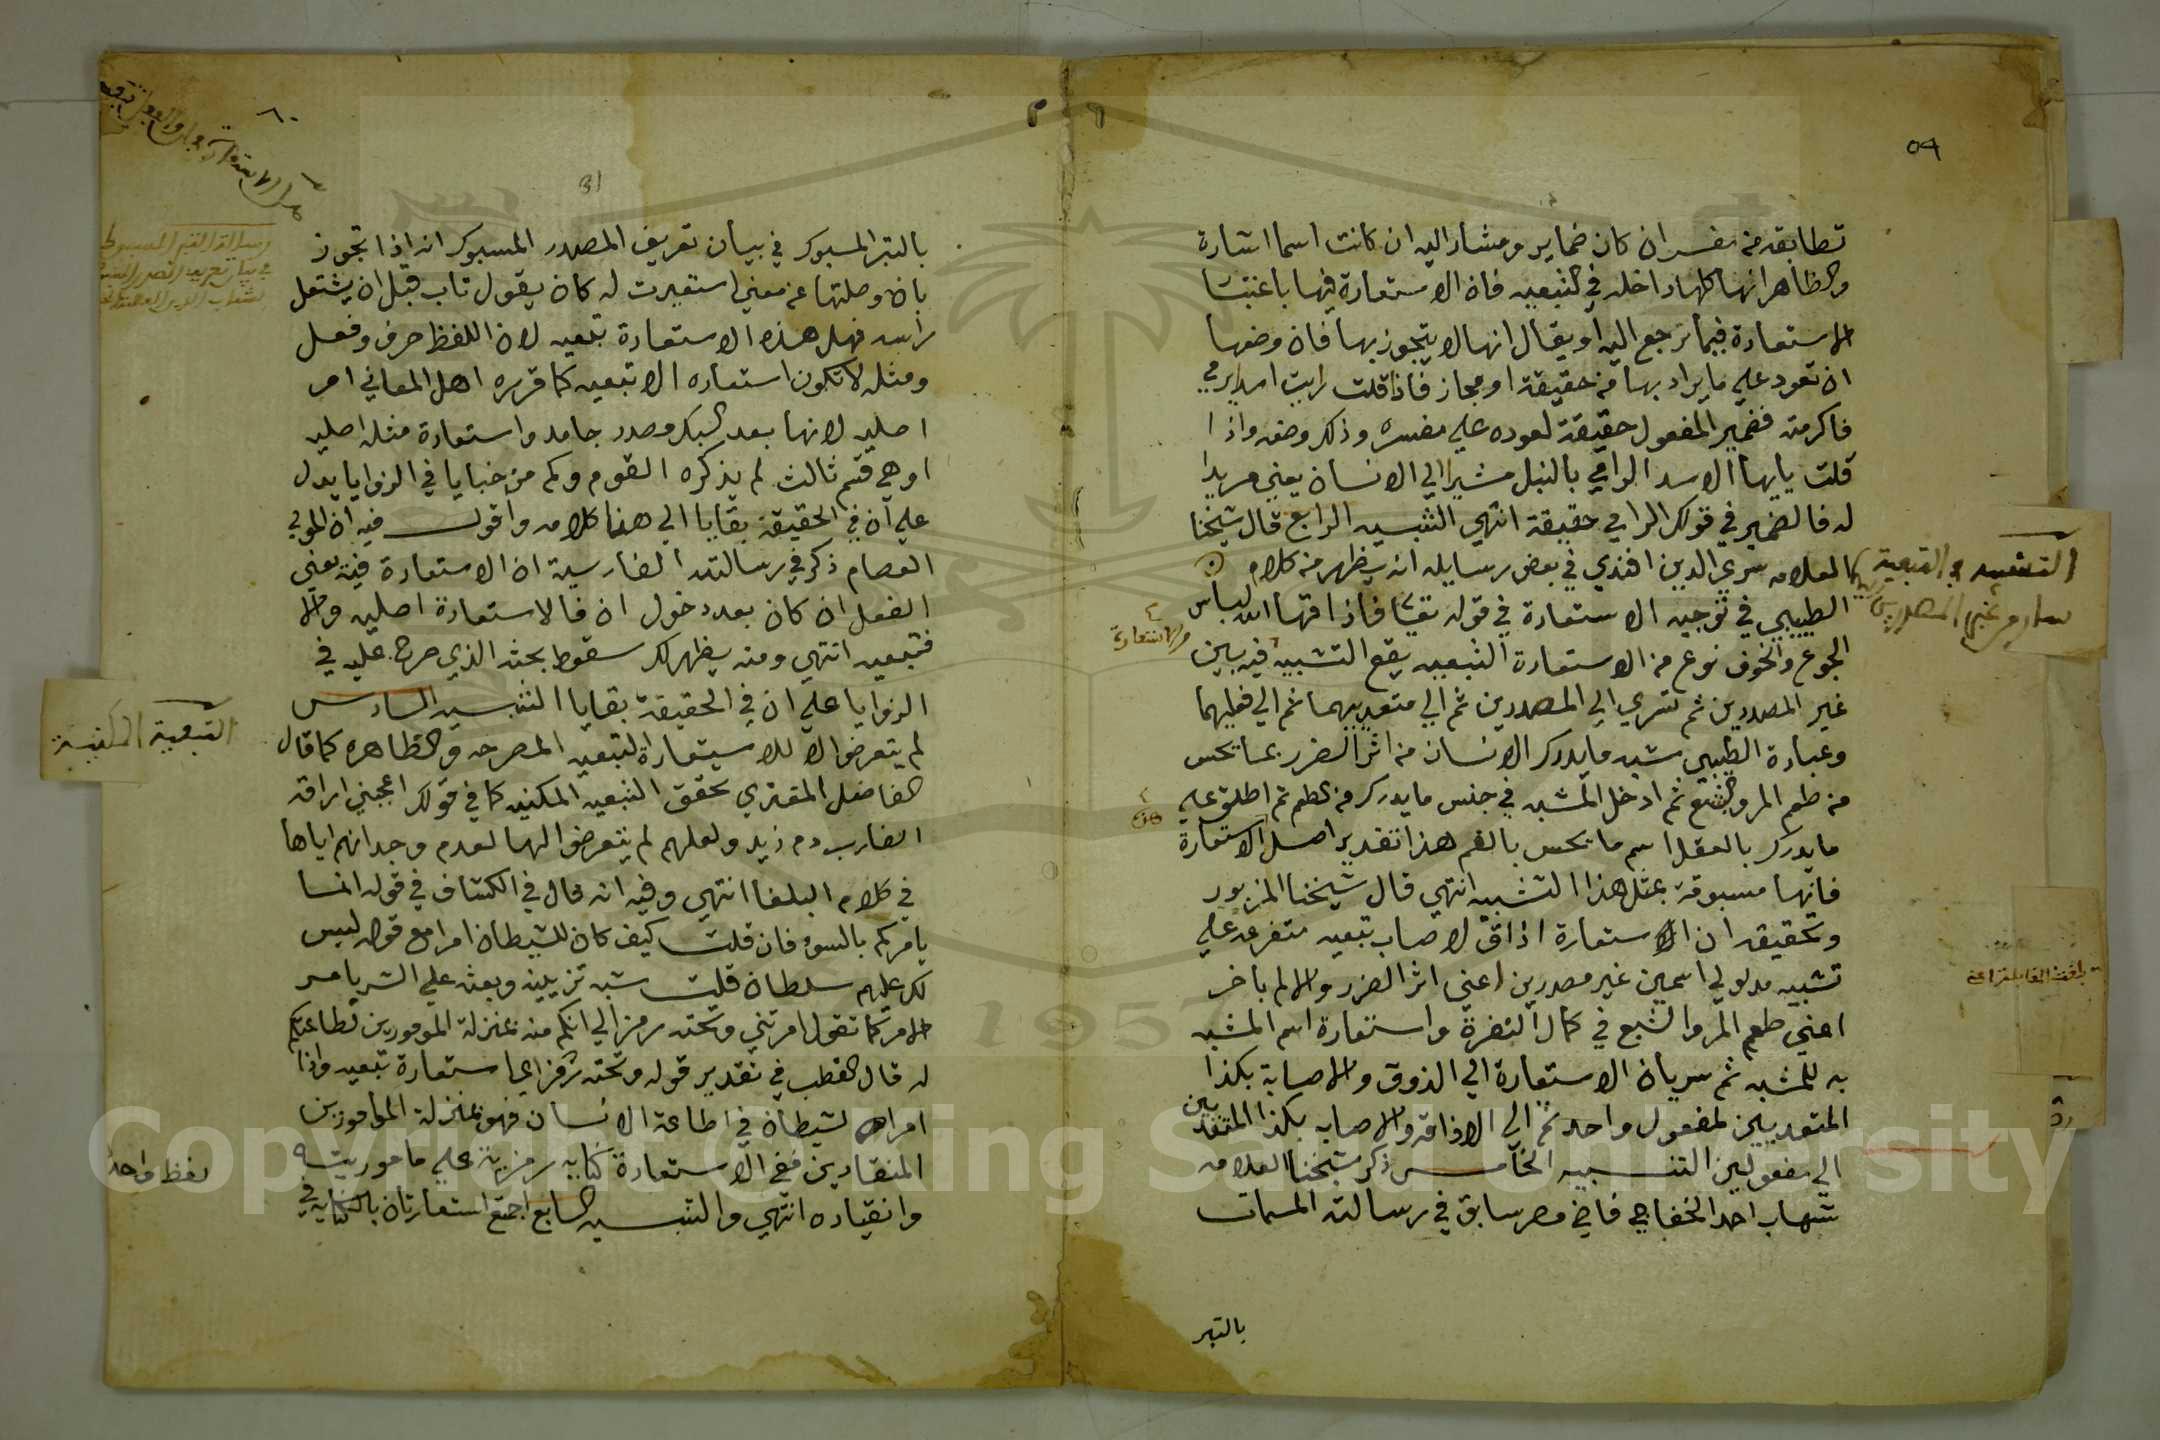 ٥٩
تطابقه من مفسر ان كان ضماير ومشار اليه ان كانت اسما اشارة
والظاهر انها كلها داخله في التبعيه فان الاستعارة فيها باعتبار
الاستعارة فيما ترجع اليه او يقال انها لا يتجوز بها فان وضعها
ان تعود علي ما يراد بها من حقيقة او مجاز فاذا قلت رايت اسدا يرمي
فاكرمته فضمير المفعول حقيقة لعوده علي مفسره وذلك وضعه واذا
قلت يايها الاسد الرامي بالنبل مشيرا الي الانسان يعني مريدا
له فالضمير في قولك الرامي حقيقة انتهي التنبيه الرابع قال شيخنا
العلامه سري الدين افندي في بعض رسايله انه يظهر من كلام
الطيبي في توجيه الاستعارة في قوله تعالي فاذاقها الله لباس
الجوع والخوف نوع من الاستعارة التبعيه يقع التشبيه فيه بين
غير المصدرين ثم تسري الي المصدرين ثم الي متعدييهما ثم الي فعليهما
وعبارة الطيبي شبه ما يدرك الانسان من اثر الضرر بما يحس
من طعم المر والبشع ثم ادخل المشبه في جنس ما يدرك من الطعم ثم اطلق علي
ما يدرك بالعقل اسم ما يحس بالفم هذا تقدير اصل الاستعارة
فانها مسبوقة بمثل هذا التشبيه انتهي قال شيخنا المزبور
وتحقيقه ان الاستعارة اذاق لاصاب تبعيه متفرعه علي
تشبيه مدلولي اسمين غير مصدرين اعني اثر الضرر والالم باخر
اعني طعم المر والبشع في كمال النفرة واستعارة اسم المشبه
به للمشبه ثم سريان الاستعارة الي الذوق والاصابة بكذا
المتعديين لمفعول واحد ثم الي الاذاقه والاصابه بكذا المتعديين
الي مفعولين التنبيه الخامس ذكر شيخنا العلامه
شهاب احمد الخفاجي قاضي مصر سابق في رسالته المسمات
بالتبر
٦٠
31
بالتبر المسبوك في بيان تعريف المصدر المسبوك انه اذا تجوز
بان وصلتها عن معني استعيرت له كان يقول تاب قبل ان يشتعل
راسه فهل هذه الاستعارة تبعيه لان اللفظ حرف وفعل
ومثله لا تكون استعاره الا تبعيه كما قرره اهل المعاني امر
اصليه لانها بعد السبك مصدر جامد واستعارة مثله اصليه
او هي قسم ثالث لم يذكره القوم وكم من خبايا في الزوايا يدل
علي ان في الحقيقة بقايا الي هنا كلامه واقول فيه ان المولي
العصام ذكر في رسالته الفارسية ان الاستعارة فيه يعني
الفعل ان كان بعد دخول ان فالاستعارة اصليه والا
فتبعيه انتهي ومنه يظهر لك سقوط بحثه الذي خرج عليه في
الزوايا علي ان في الحقيقة بقايا التنبيه السادس
لم يتعرضوا الا للاستعارة التبعيه المصرحه والظاهره كما قال
الفاضل المقتري تحقق التبعيه المكنيه كما في قولك اعجبني اراقة
الضارب دم زيد ولعلهم لم يتعرضوا لها لعدم وجدانهم اياها
في كلام البلغا انتهي وفيه انه قال في الكشاف في قوله انما
يامركم بالسوء فان قلت كيف كان للشيطان امرا مع قوله ليس
لك عليهم سلطان قلت شبه تزيينه وبعثه علي الشر بامر
الامر كما تقول امرتني وتحته رمز الي انكم منه بمنزلة المومورين لطاعتكم
له قال القطب في تقدير قوله وتحته رمز اي استعارة تبعيه واذا
امرا لشيطان في اطاعة الانسان فهو بمنزلة المامورين
المنقادين ففي الاستعارة كناية رمزية علي ماموريته
وانقياده انتهي والتنبيه السابع اجتمع استعارتان بالكناية في
التبعية المكنية
لفظ واحد
Copyright © King Saud University
1957